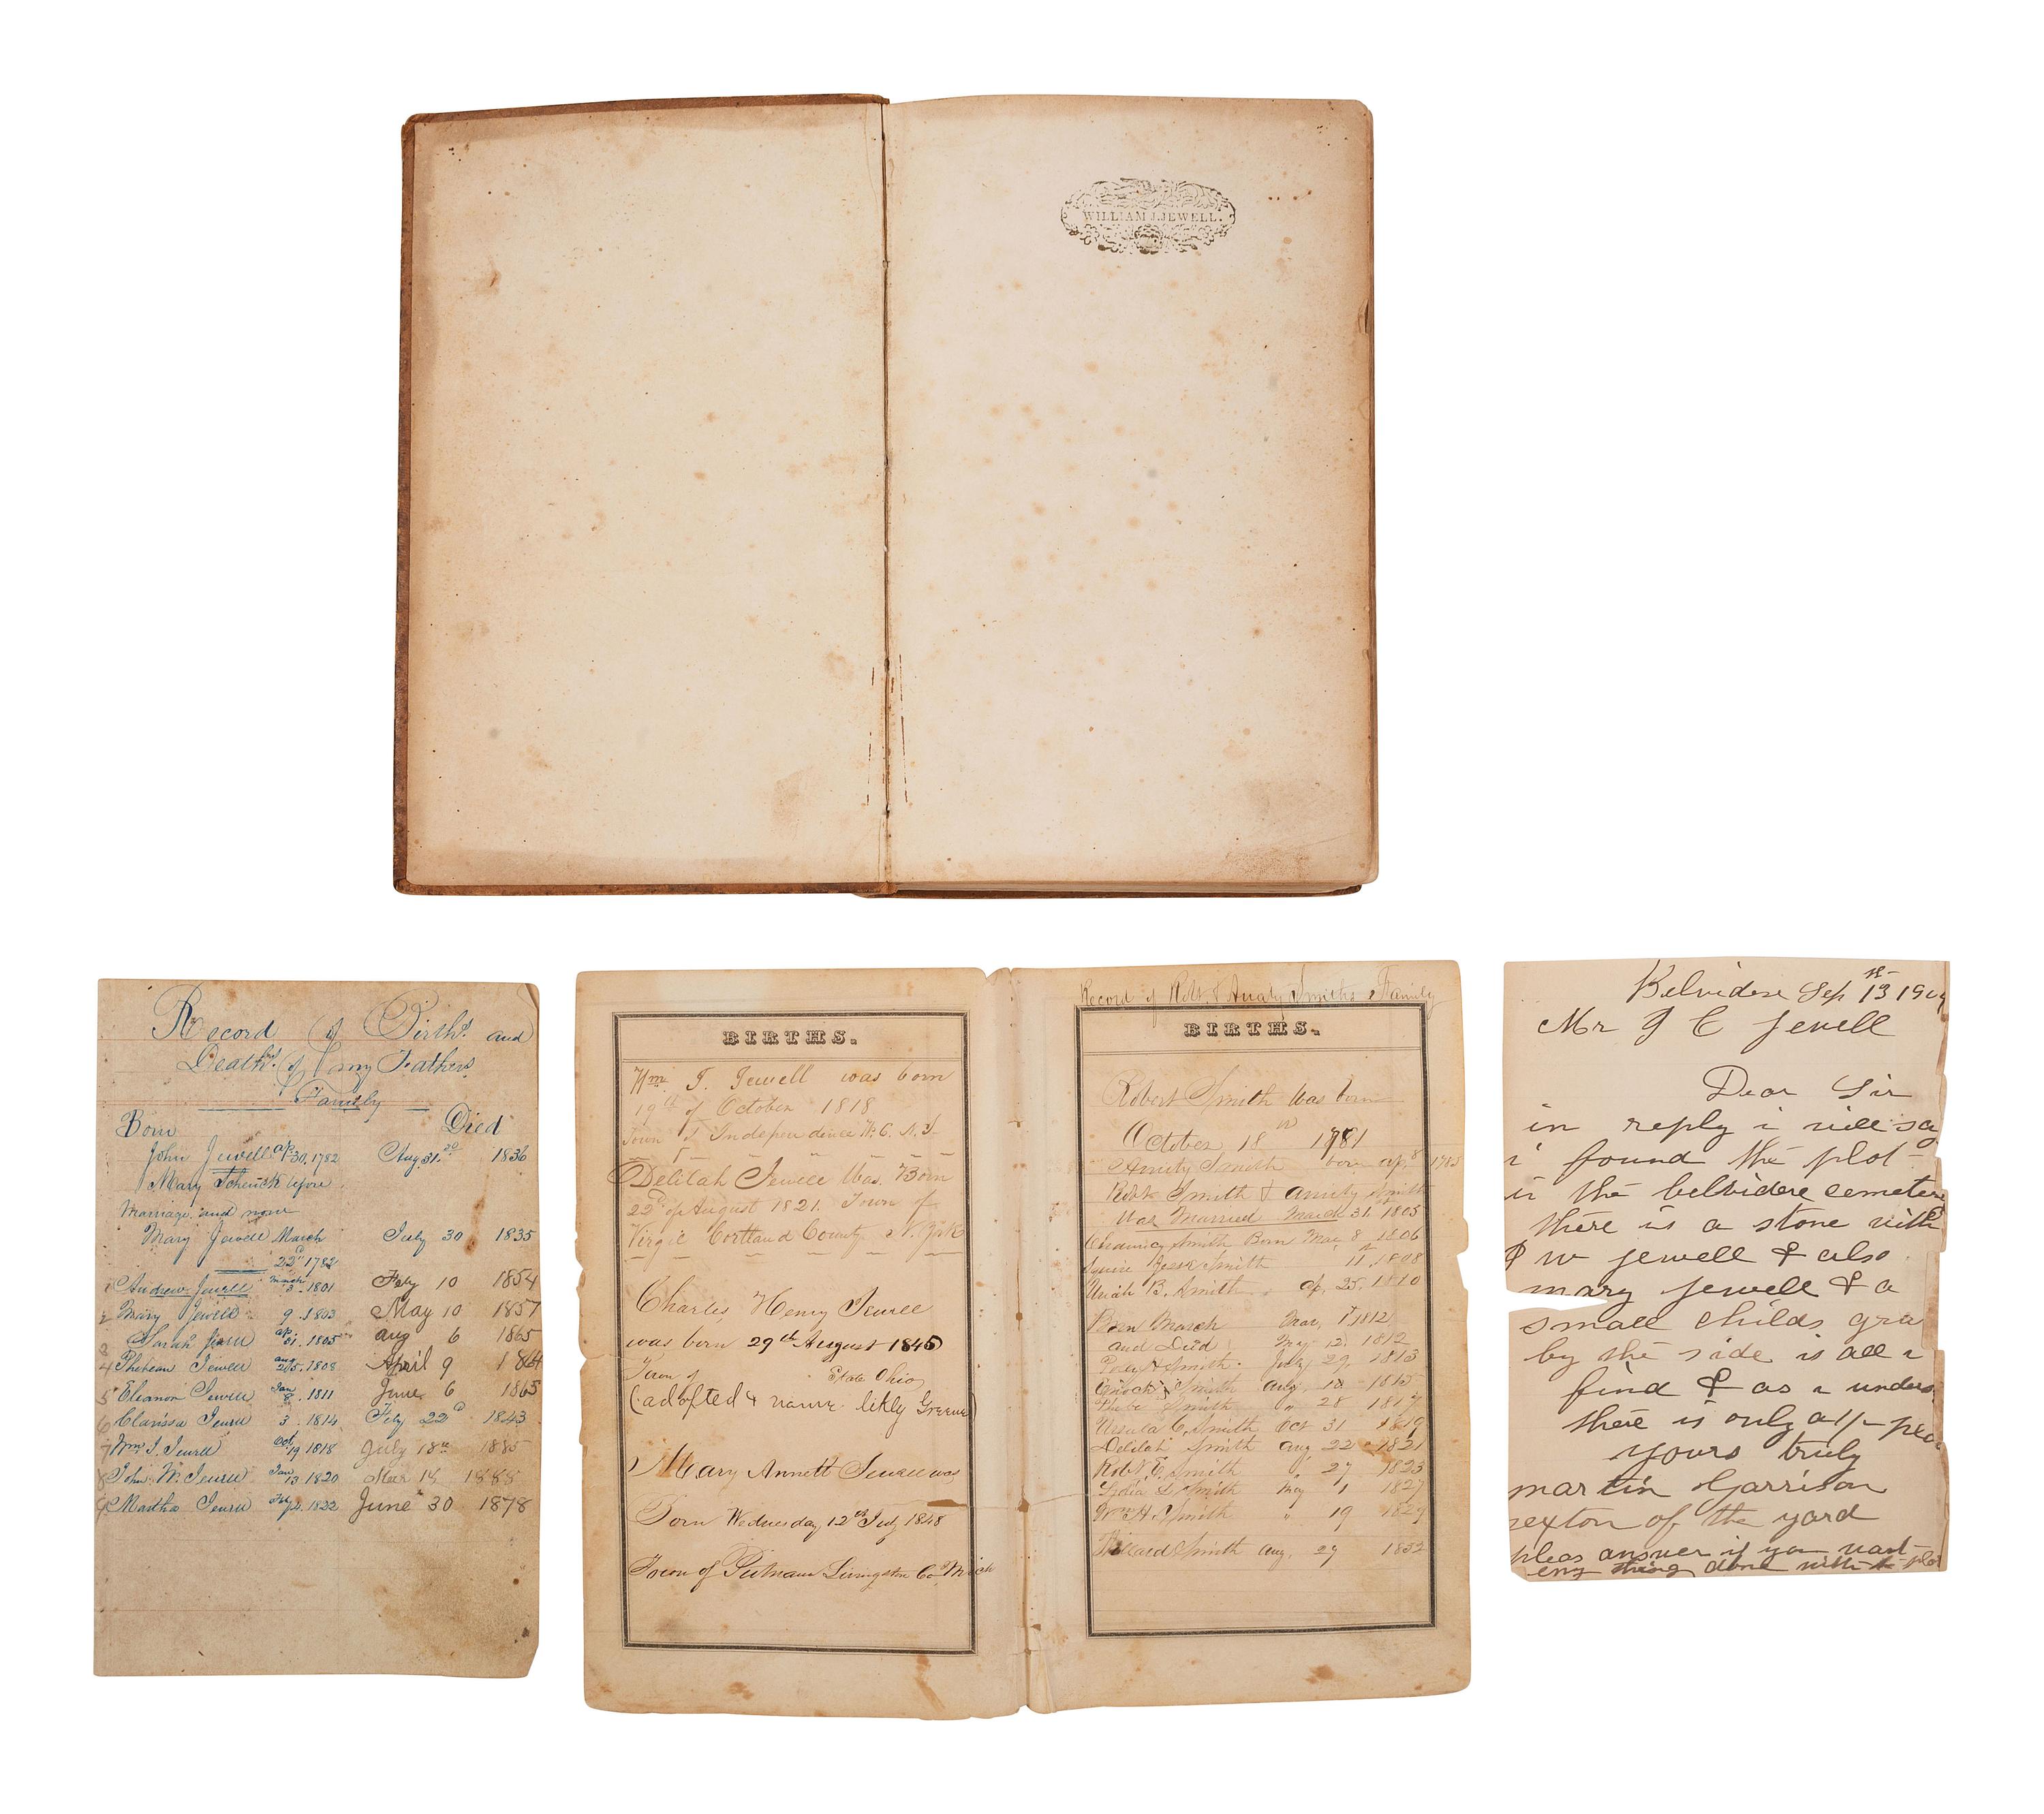 WILLIAM J. JEWELL.
Record of Births and
Deaths of my Fathers
Family
Born Died
John Jewell ap. 30. 1782 Aug. 31. 1836
Mary Schenck before
Marriage and now
Mary Jewell March July 30 1835
22d 1782
1 Andrew Jewell March 3. 1801 Feby 10 1854
2 Mary Jewell 9. 1803 May 10 1857
3 Sarah Jewell ap. 1805 aug 6 1865
4 Phebean Jewell aug 1808 April 9 1864
5 Eleanor Jewell Jan 8. 1811 June 6 1865
6 Clarissa Jewell 3. 1814 Feby 22d 1843
7 Wm. J. Jewell Oct 19 1818 July 18th 1885
8 John W. Jewell Jan 13 1820 Mar 1888
9 Martha Jewell Feby 1822 June 30 1878
BIRTHS.
Wm. J. Jewell was born
19th of October 1818
Town of Independence W. C. N. J.
Delilah Jewell Was Born
22d of August 1821. Town of
Virgie Cortland County N. York
Charles Henry Jewell
was born 29th August 1845
Town of State Ohio
(adopted & name likly Greene)
Mary Annett Jewell was
Born Wednesday 12th July 1848
Town of Putnam Livingston Co. Mich
Record of Robt. & Amity Smiths Family
BIRTHS.
Robert Smith Was born
October 18th 1781
Amity Smith born ap. 8
Robt Smith & amity Smith
Was Married March 31. 1805
Chauncy Smith Born May 8 1806
Squire Smith 11th 1808
Uriah B. Smith ap. 25. 1810
Born March Mar. 1st 1812
and Died May 12. 1812
Smith. July 29. 1813
Enoch Smith aug. 18 1815
Phebe Smith " 28 1817
Ursula C. Smith Oct 31 1819
Delilah Smith aug 22 1821
Robt. E. Smith " 27 1823
Lydia L. Smith May 1 1827
Wm. H. Smith " 19 1829
Willard Smith aug. 27 1832
Belvidere Sep 13 190
Mr J C Jewell
Dear Sir
in reply i will say
i found the plot
in the belvidere cemetere
there is a stone with
J W Jewell & also
mary Jewell & a
small childs gra
by the side is all i
find & as i unders
there is only a
yours truly
martin Garrison
sexton of the yard
pleas answer if you want
eny thing done with the plot